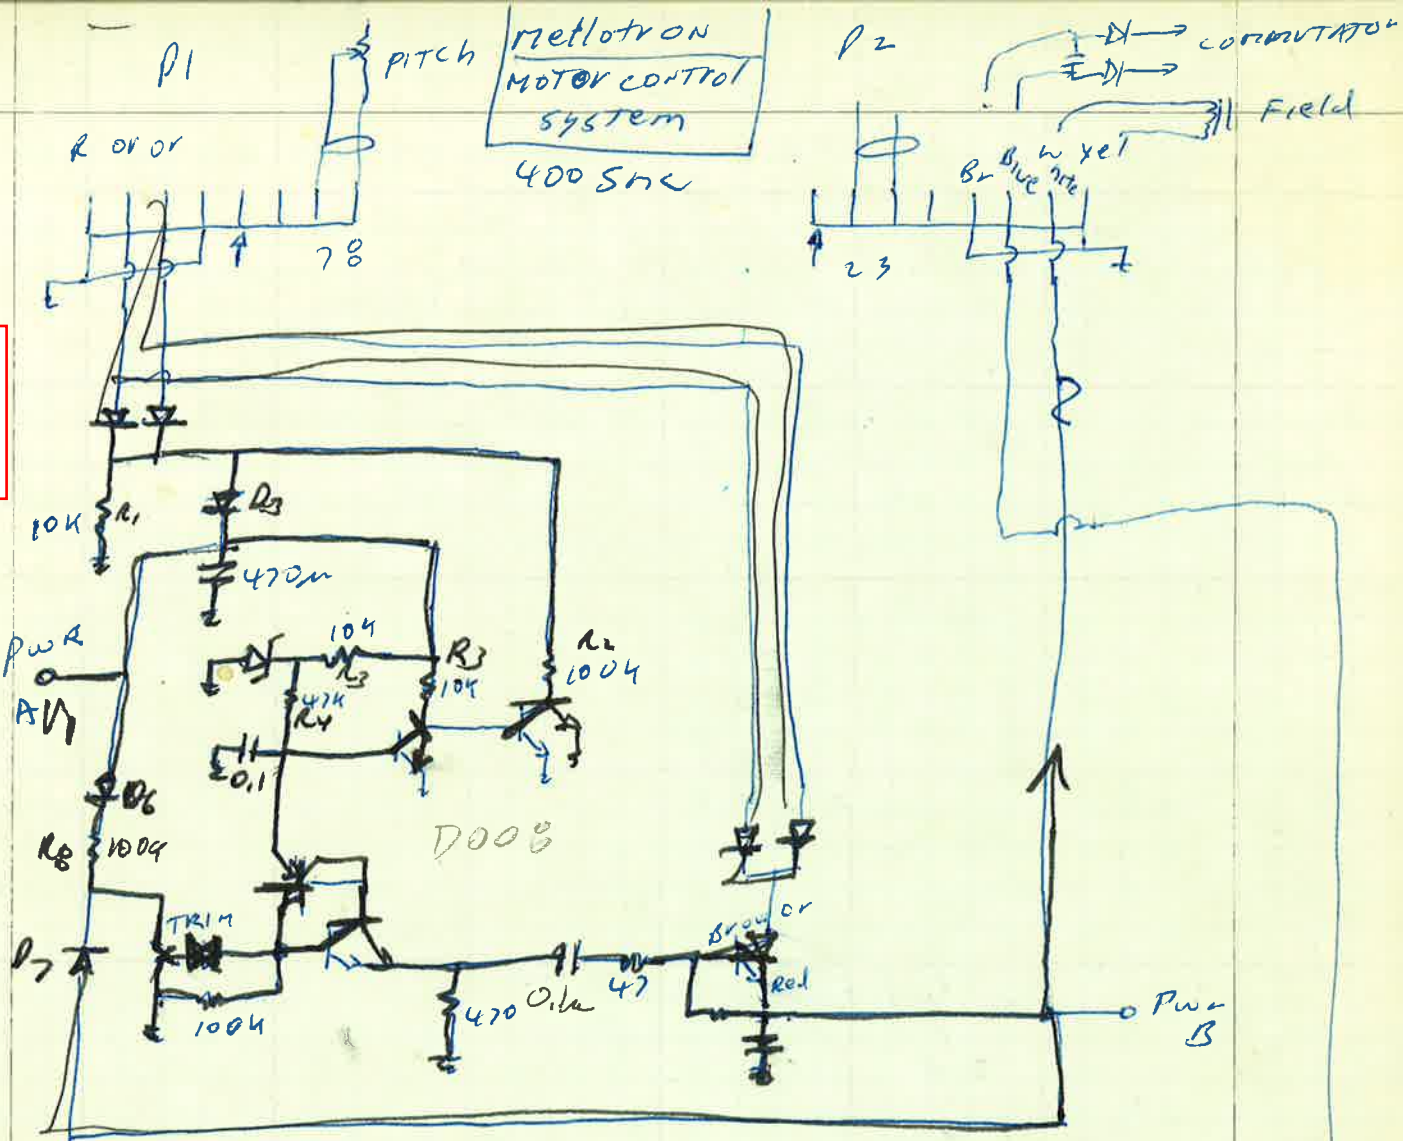 P1
PITCH
Mellotron
MOTOR CONTROL
system
400 SMC
P2
COMMUTATOR
Field
R or or
Br Blue white yel
7 8
2 3
10K R1
D3
470µ
PWR
A
10K
R3
R3
10K
R2
100K
47K
R4
0.1
D6
R8 100Ω
D008
TRIM
D7
100K
470
0.1µ
47
Brow
or
Red
Pwr
B